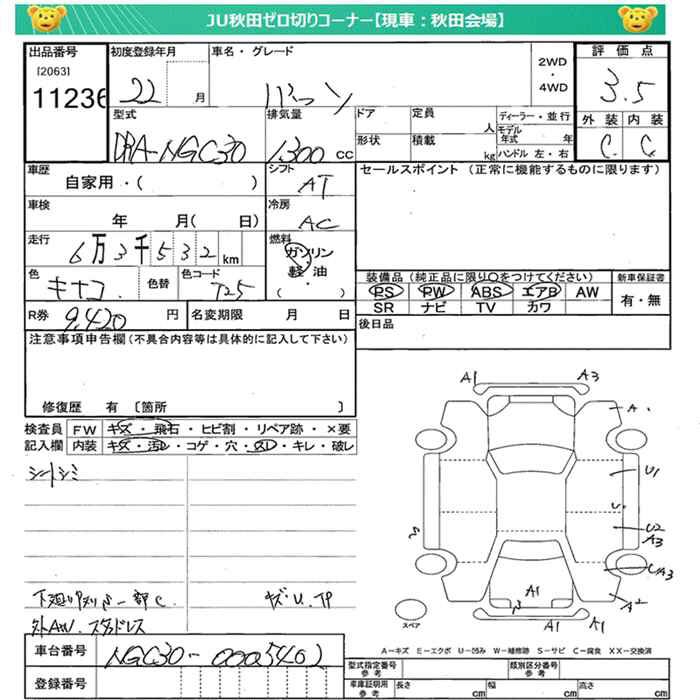 JU秋田ゼロ切りコーナー【現車：秋田会場】
出品番号
[2063]
11236
初度登録年月
22 月
車名・グレード
パッソ
2WD
・
4WD
評価点
3.5
外装 内装
C C
型式
DBA-NGC30
排気量
1300 cc
ドア
形状
定員 人
積載 kg
ディーラー・並行
モデル年式 年
ハンドル 左・右
車歴
自家用・( )
シフト
AT
セールスポイント (正常に機能するものに限ります)
車検
年 月( 日)
冷房
AC
走行
6万3千532km
燃料
ガソリン
軽油
・
( )
色
キナコ
色替
色コード
T25
装備品 (純正品に限り○をつけてください)
PS PW ABS エアB AW
SR ナビ TV カワ
新車保証書
有・無
R券
9,420 円
名変期限 月 日
後日品
注意事項申告欄(不具合内容等は具体的に記入して下さい)
修復歴 有 〔箇所 〕
検査員
記入欄
FW キズ・飛石・ヒビ割・リペア跡・×要
内装 キズ・汚レ・コゲ・穴・スレ・キレ・破レ
シートシミ
下廻りサビ 一部C
キズ.U.TP
外AW.スタッドレス
A1 A3
A
U1
U
U2
A3
UA3
A2
A1
A1 A1
スペア
A－キズ E－エクボ U－凹み W－補修跡 S－サビ C－腐食 XX－交換済
車台番号
NGC30-0005402
登録番号
型式指定番号
参考
類別区分番号
参考
車庫証明用
参考
長さ cm 幅 cm 高さ cm